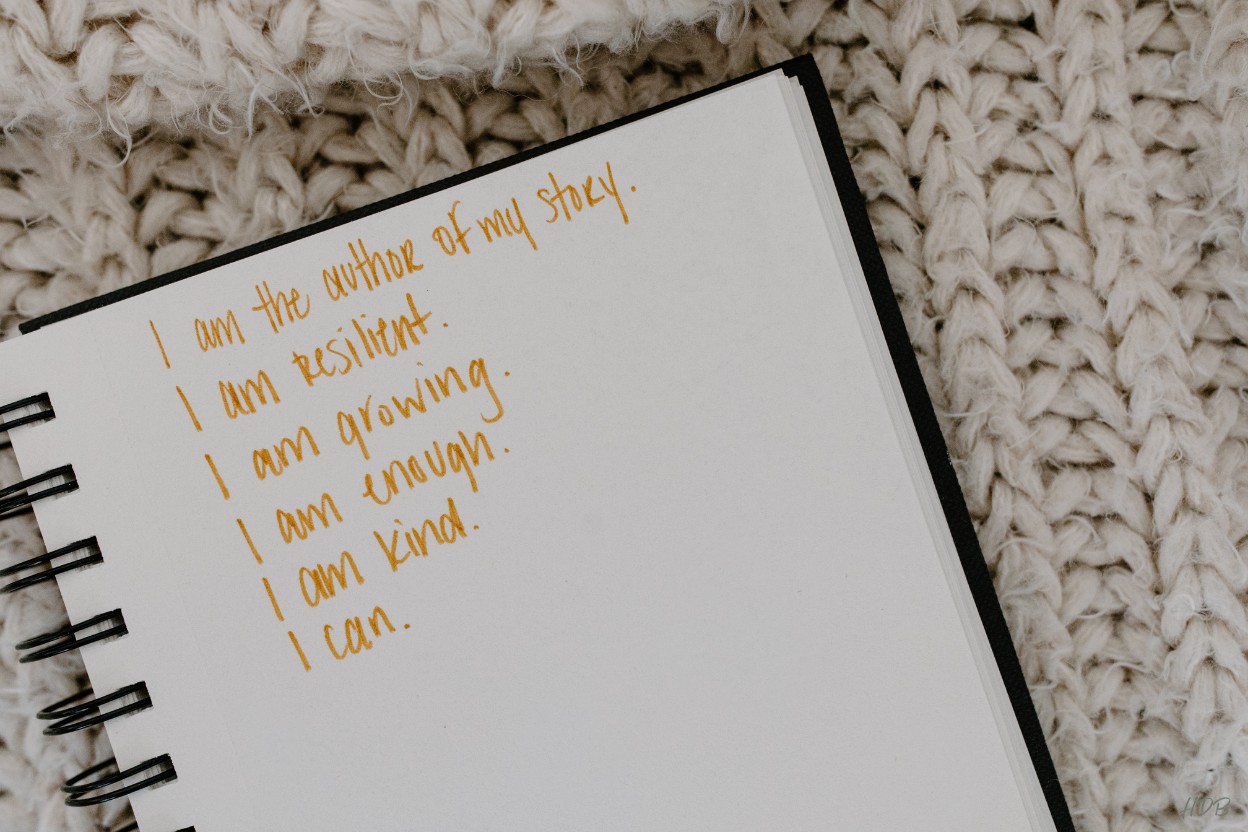 I am the author of my story.
I am resilient.
I am growing.
I am enough.
I am kind.
I can.
HDB